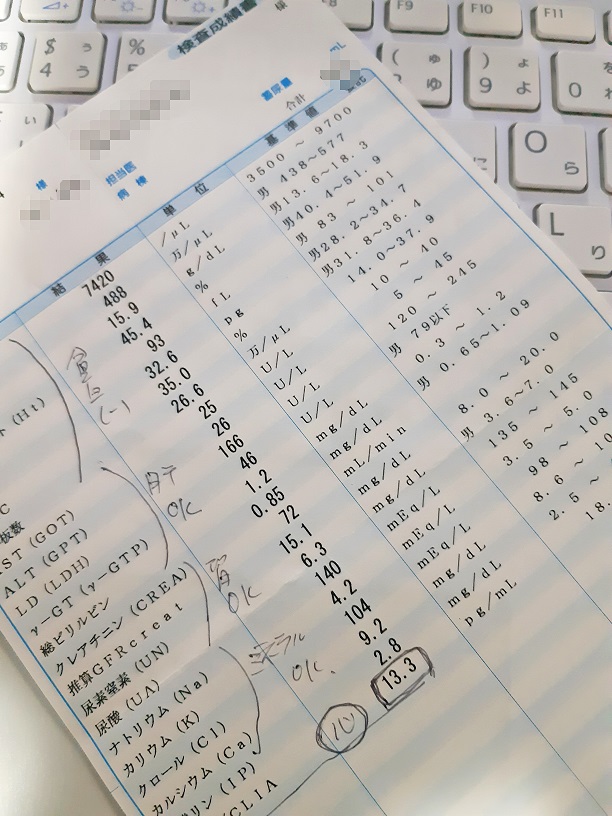 検査成績書
様
担当医
病棟
蓄尿量
mL
合計
結果 単位 基準値
7420 /μL 3500 ～ 9700
488 万/μL 男 438～577
15.9 g/dL 男13.6～18.3
(Ht) 45.4 % 男40.4～51.9
93 fL 男 83 ～ 101
32.6 pg 男28.2～34.7
C 35.0 % 男31.8～36.4
板数 26.6 万/μL 14.0～37.9
AST (GOT) 25 U/L 10 ～ 40
ALT (GPT) 26 U/L 5 ～ 45
LD (LDH) 166 U/L 120 ～ 245
γ-GT (γ-GTP) 46 U/L 男 79以下
総ビリルビン 1.2 mg/dL 0.3 ～ 1.2
クレアチニン (CREA) 0.85 mg/dL 男 0.65～1.09
推算GFRcreat 72 mL/min
尿素窒素 (UN) 15.1 mg/dL 8.0 ～ 20.0
尿酸 (UA) 6.3 mg/dL 男 3.6～7.0
ナトリウム (Na) 140 mEq/L 135 ～ 145
カリウム (K) 4.2 mEq/L 3.5 ～ 5.0
クロール (Cl) 104 mEq/L 98 ～ 108
カルシウム (Ca) 9.2 mg/dL 8.6 ～ 10
リン (IP) 2.8 mg/dL 2.5 ～
CLIA 13.3 pg/mL 18.
(-)
肝
OK
腎
OK
ミネラル
OK.
心
$ ぅ
4 う
%
5
( ゅ
ゆ
) ょ
9 よ
を
0
F9
F10
F11
い
に
O
ら
L
り